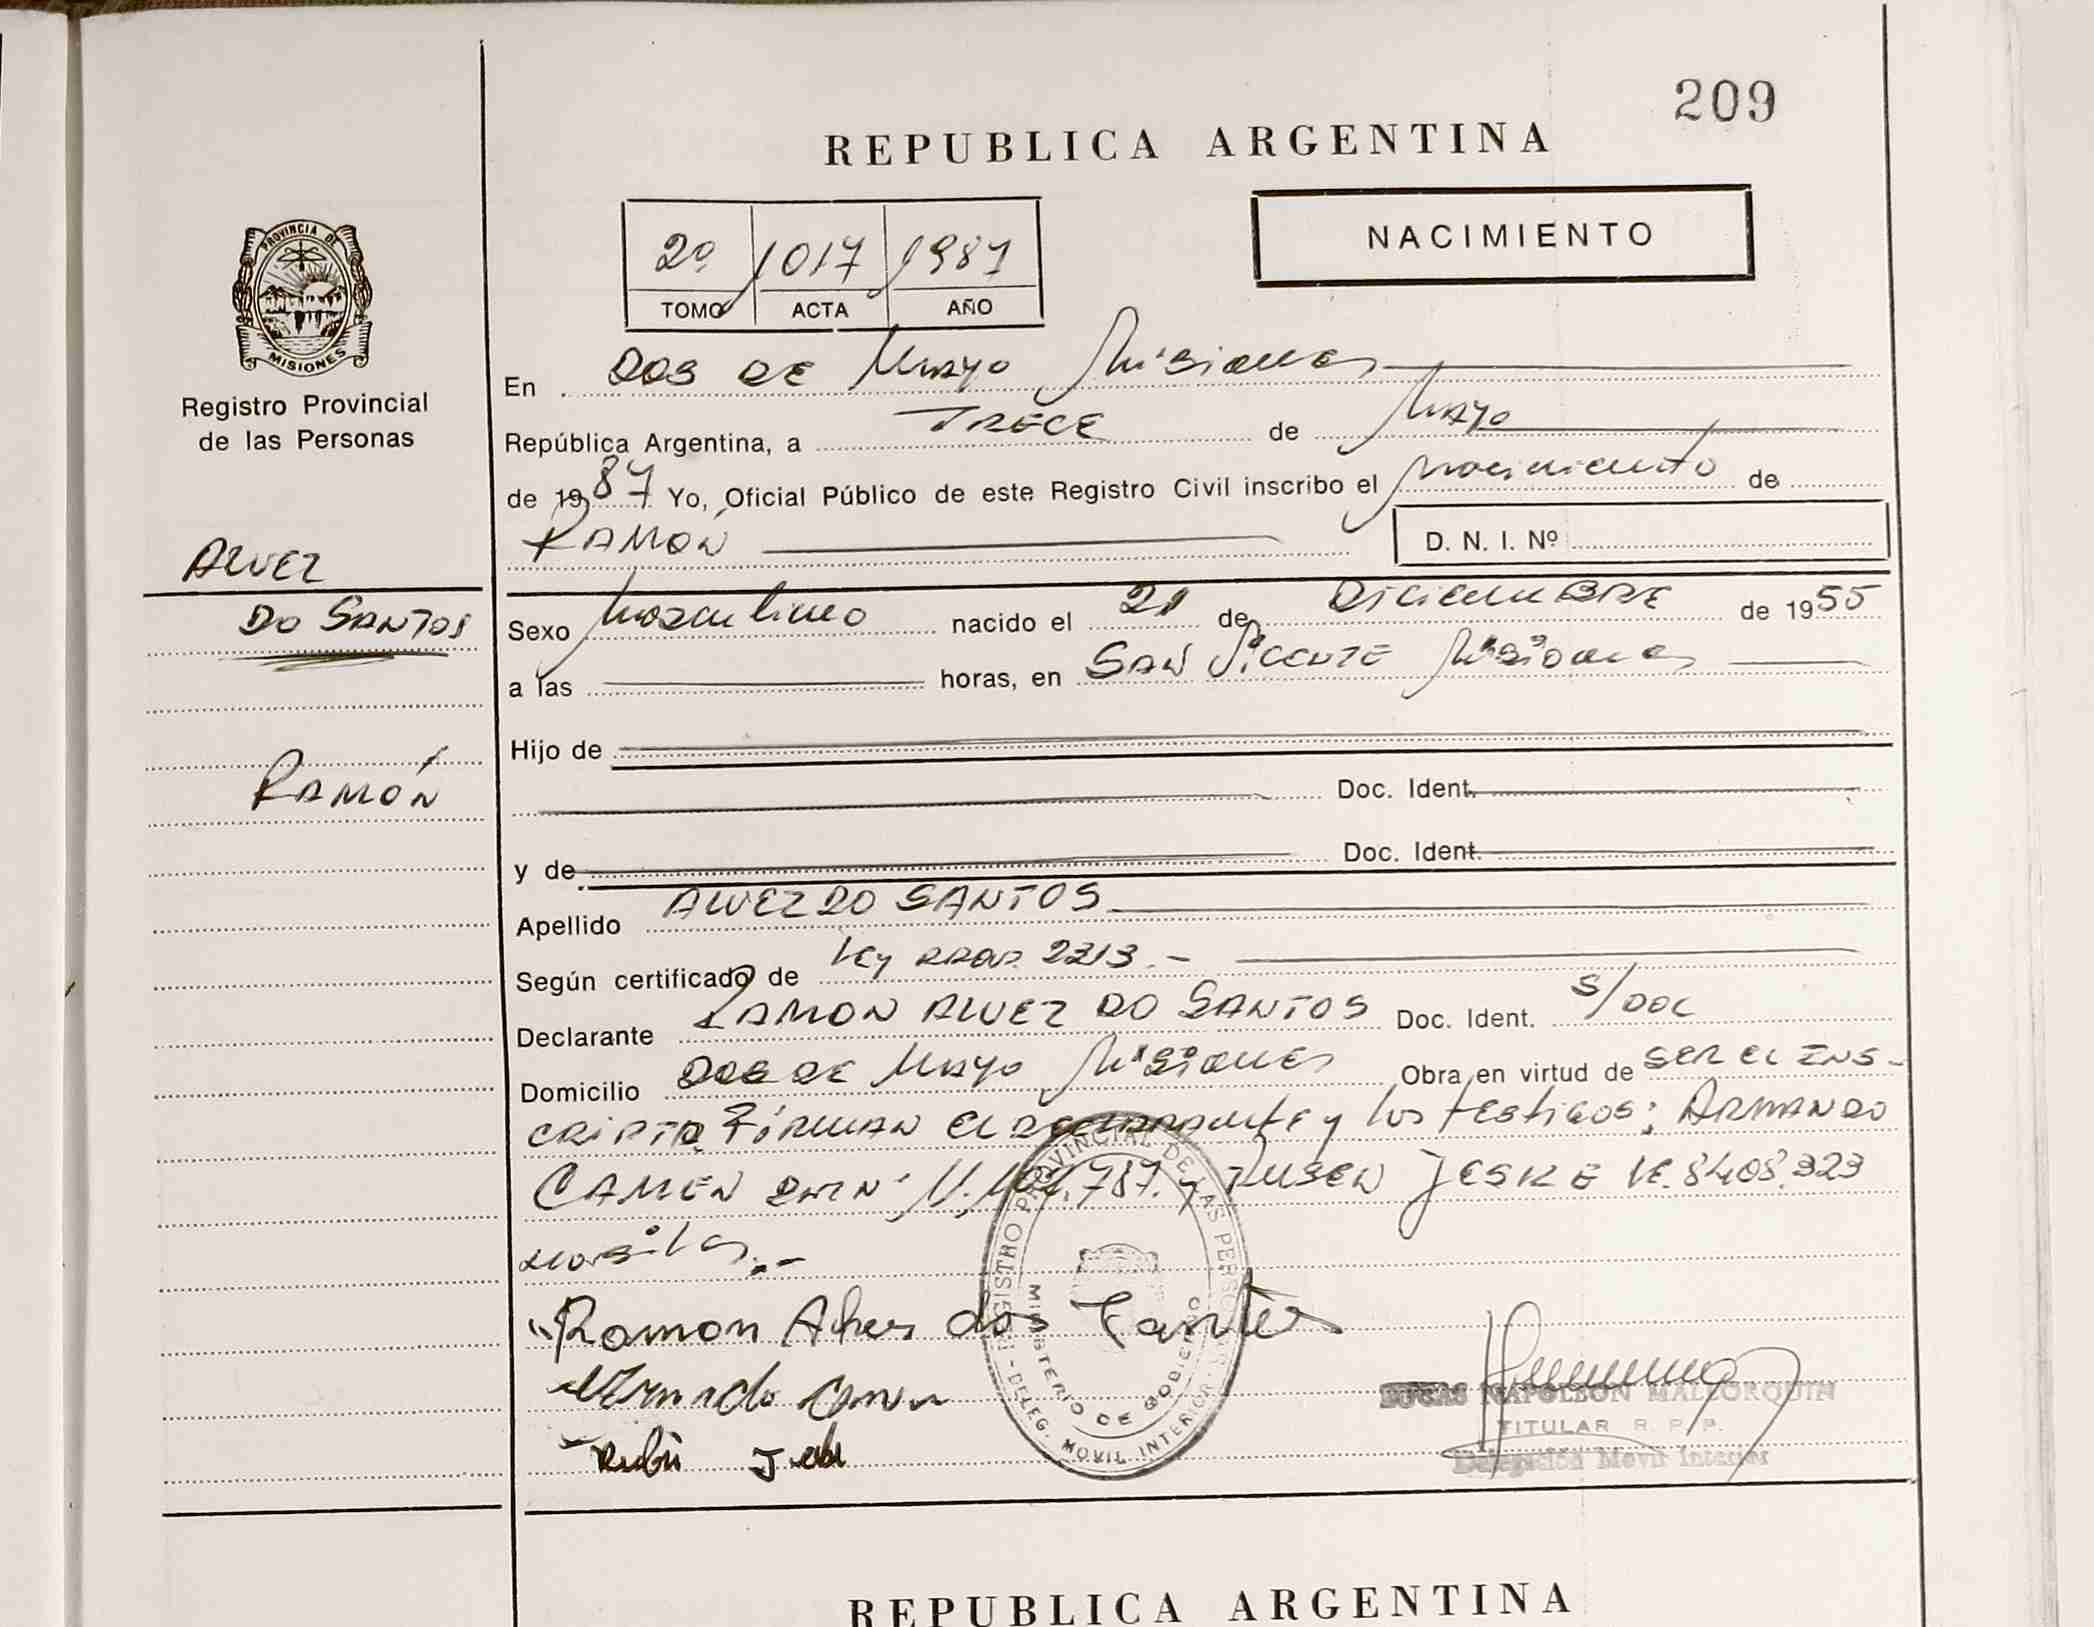 209
REPUBLICA ARGENTINA
PROVINCIA DE MISIONES
Registro Provincial
de las Personas
2º 1017 1987
TOMO ACTA AÑO
NACIMIENTO
ALVEZ
DO SANTOS
RAMÓN
En DOS DE Mayo Misiones
República Argentina, a TRECE de Mayo
de 1987 Yo, Oficial Público de este Registro Civil inscribo el nacimiento de
RAMÓN D. N. I. Nº
Sexo Masculino nacido el 21 de DICIEMBRE de 1955
a las horas, en SAN VICENTE Misiones
Hijo de
Doc. Ident.
y de Doc. Ident.
Apellido ALVEZ DO SANTOS
Según certificado de Ley PROV. 2213.-
Declarante RAMON ALVEZ DO SANTOS Doc. Ident. S/DOC
Domicilio DOS DE Mayo Misiones Obra en virtud de SER EL INS-
CRIPTO FIRMAN El DECLARANTE y los TESTIGOS: ARMANDO
CAMEN Nº 787. y RUBEN JESKE 8408.323
Ramon Alves dos Santos
REGISTRO PROVINCIAL DE LAS PERSONAS - DELEG. MOVIL INTERIOR -
MINISTERIO DE GOBIERNO
LUCAS NAPOLEON MALLORQUIN
TITULAR R. P. P.
Delegación Movil Interior
REPUBLICA ARGENTINA